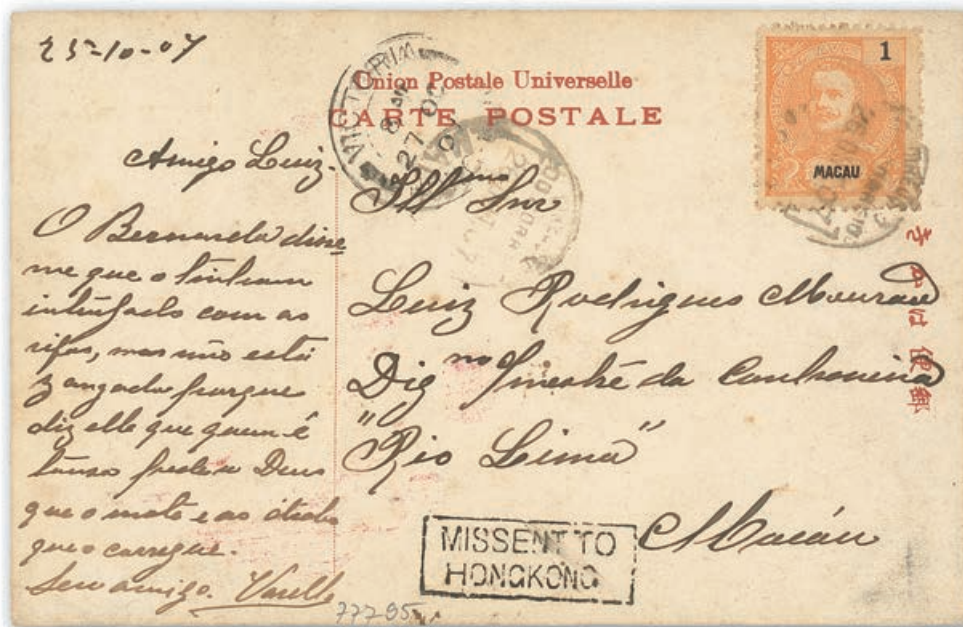 25-10-07
Union Postale Universelle
CARTE POSTALE
1
MACAU
VICTORIA
8 AM
27 OC
07
Amigo Luiz.
O Bernardo disse
me que o tinham
intrujado com as
rifas, mas não está
zangado porque
diz elle que quem é
tanso pede a Deus
que o mate e ao diabo
que o carregue.
Seu amigo. Varella
Illmo Snr
Luiz Rodrigues Mourão
Digno Mestre da Canhoneira
"Rio Lima"
Macáu
MISSENT TO
HONGKONG
77795